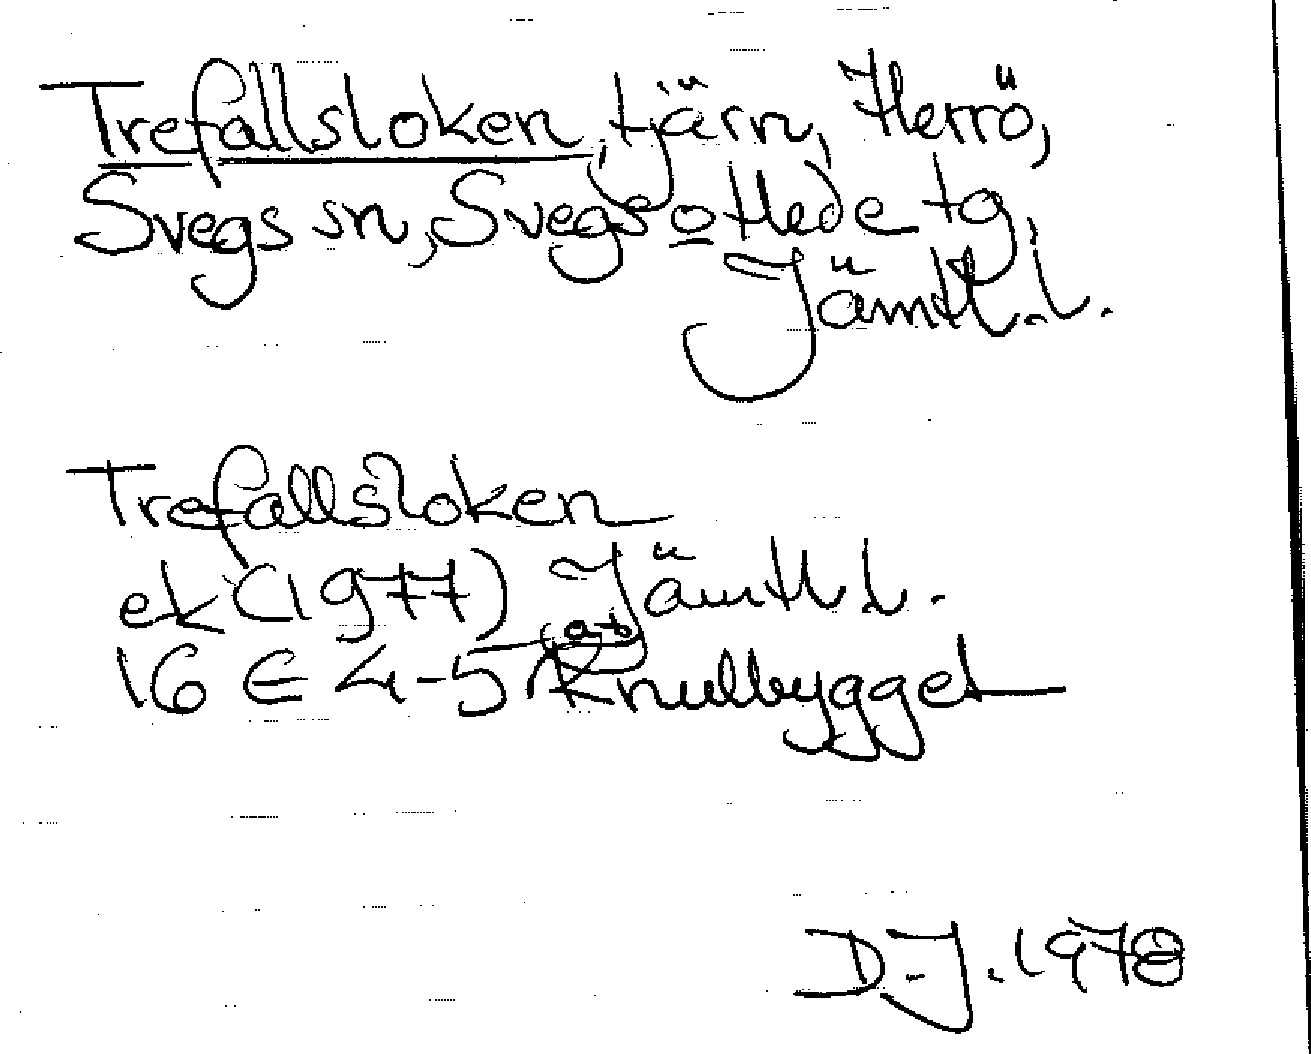 Trefallsloken, tjärn, Herrö,
Svegs sn, Svegs o Hede tg,
Jämtl. l.
Trefallsloken
ek (1977) Jämtl l.
16 E 4-5 (a-b) Knulbygget
D-J. 1978